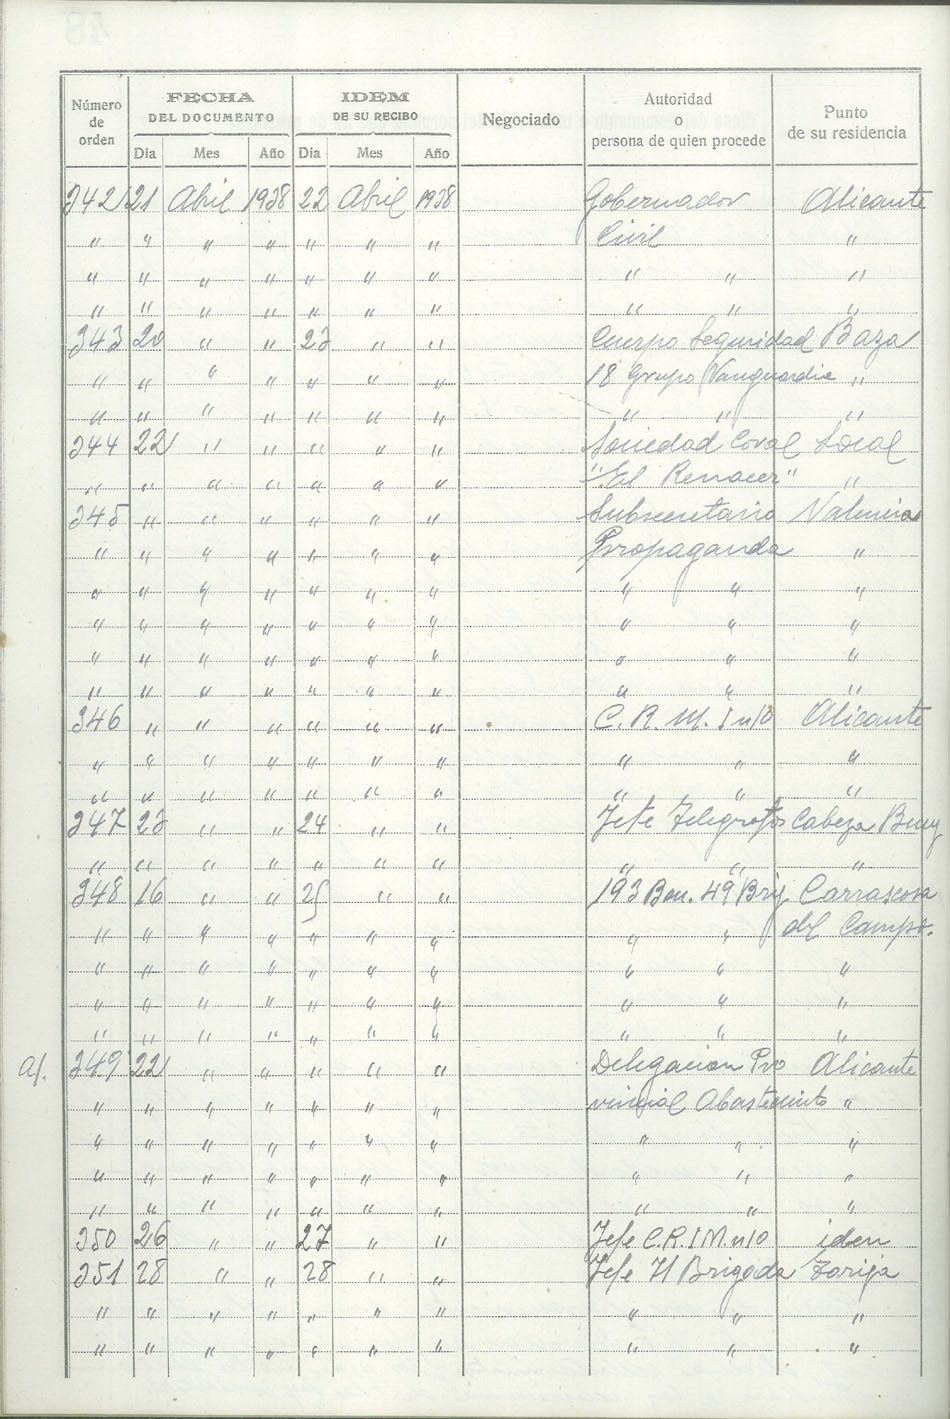 Número de orden | FECHA DEL DOCUMENTO | IDEM DE SU RECIBO | Negociado | Autoridad o persona de quien procede | Punto de su residencia
Dia | Mes | Año | Dia | Mes | Año
342 21 Abril 1938 22 Abril 1938 Gobernador Alicante
" " " " " " " Civil "
" " " " " " " " " "
" " " " " " " " " "
343 20 " " 23 " " Cuerpo Seguridad Baza
" " " " " " " 18 Grupo Vanguardia "
" " " " " " " " " "
344 22 " " " " " Sociedad Coral Local
" " " " " " " "El Renacer" "
345 " " " " " " Subsecretario Valencia
" " " " " " " Propaganda "
" " " " " " " " " "
" " " " " " " " " "
" " " " " " " " " "
" " " " " " " " " "
346 " " " " " " C. R. M. I nº10 Alicante
" " " " " " " " " "
" " " " " " " " " "
347 23 " " 24 " " Jefe Telegrafos Cabeza Buey
" " " " " " " " " "
348 16 " " 25 " " 193 Bon. 49 Brig Carrascosa
" " " " " " " " " del Campo.
" " " " " " " " " "
" " " " " " " " " "
" " " " " " " " " "
349 22 " " " " " Delegacion Pro Alicante
" " " " " " " vincial Abastecimto "
" " " " " " " " " "
" " " " " " " " " "
" " " " " " " " " "
350 26 " " 27 " " Jefe C.R.I M. nº10 iden
351 28 " " 28 " " Jefe Brigada
" " " " " " " " " "
" " " " " " " " " "